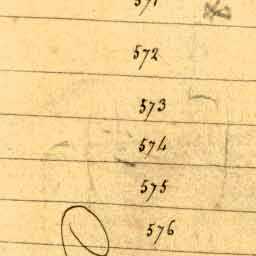 571
572
573
574
575
576